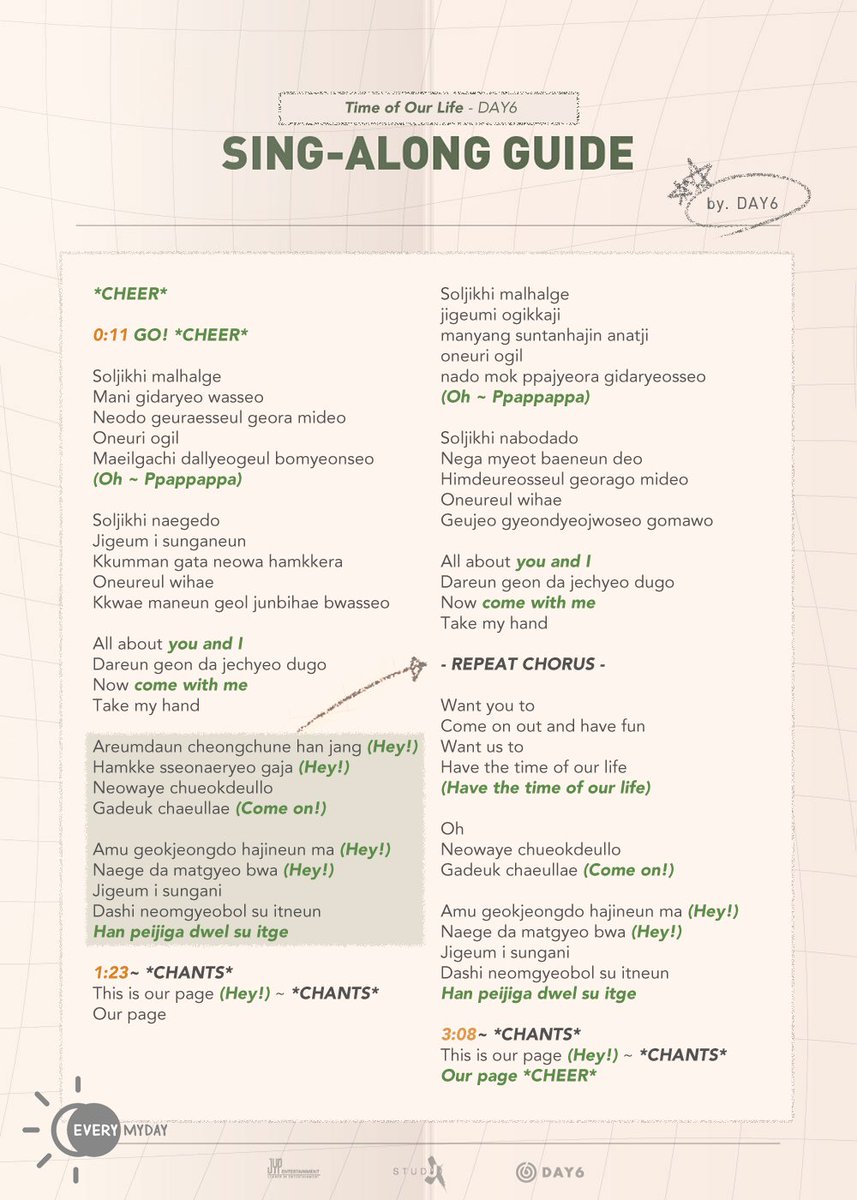 Time of Our Life - DAY6
SING-ALONG GUIDE
by. DAY6
*CHEER*
0:11 GO! *CHEER*
Soljikhi malhalge
Mani gidaryeo wasseo
Neodo geuraesseul geora mideo
Oneuri ogil
Maeilgachi dallyeogeul bomyeonseo
(Oh ~ Ppappappa)
Soljikhi naegedo
Jigeum i sunganeun
Kkumman gata neowa hamkkera
Oneureul wihae
Kkwae maneun geol junbihae bwasseo
All about you and I
Dareun geon da jechyeo dugo
Now come with me
Take my hand
Areumdaun cheongchune han jang (Hey!)
Hamkke sseonaeryeo gaja (Hey!)
Neowaye chueokdeullo
Gadeuk chaeullae (Come on!)
Amu geokjeongdo hajineun ma (Hey!)
Naege da matgyeo bwa (Hey!)
Jigeum i sungani
Dashi neomgyeobol su itneun
Han peijiga dwel su itge
1:23~ *CHANTS*
This is our page (Hey!) ~ *CHANTS*
Our page
Soljikhi malhalge
jigeumi ogikkaji
manyang suntanhajin anatji
oneuri ogil
nado mok ppajyeora gidaryeosseo
(Oh ~ Ppappappa)
Soljikhi nabodado
Nega myeot baeneun deo
Himdeureosseul georago mideo
Oneureul wihae
Geujeo gyeondyeojwoseo gomawo
All about you and I
Dareun geon da jechyeo dugo
Now come with me
Take my hand
- REPEAT CHORUS -
Want you to
Come on out and have fun
Want us to
Have the time of our life
(Have the time of our life)
Oh
Neowaye chueokdeullo
Gadeuk chaeullae (Come on!)
Amu geokjeongdo hajineun ma (Hey!)
Naege da matgyeo bwa (Hey!)
Jigeum i sungani
Dashi neomgyeobol su itneun
Han peijiga dwel su itge
3:08~ *CHANTS*
This is our page (Hey!) ~ *CHANTS*
Our page *CHEER*
EVERY MYDAY
JYP ENTERTAINMENT
LEADER IN ENTERTAINMENT
STUDIO
DAY6